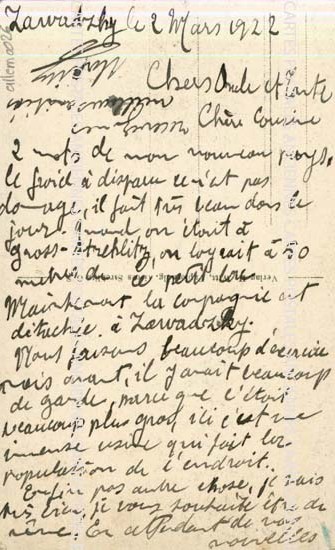 Zawadzky le 2 Mars 1922
Chers Oncle et Tante
Chère Cousine
2 mots de mon nouveau pays.
le froid à disparu ce n'est pas
domage, il fait très beau dans le
jour. quand on était à
Gross-Strehlitz, on logeait à 50
metres de ce
Maintenant la compagnie est
détachée à Zawadzky.
Nous faisons beaucoup d'exercice
mais avant, il y avait beaucoup
de garde, parce que c'était
beaucoup plus gros, ici c'est une
immense usine qui fait la
population de l'endroit.
Enfin pas autre chose, je vais
très bien, je vous souhaite être de
même. En attendant de vos
nouvelles
allema026